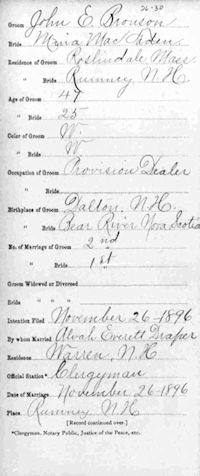 26-30
Groom John E. Bronson
Bride Minia MacFaden
Residence of Groom Roslindale Mass
" Bride Rumney N.H.
Age of Groom 47
" Bride 25
Color of Groom W.
" Bride W
Occupation of Groom Provision Dealer
" Bride
Birthplace of Groom Dalton, N.H.
" Bride Bear River Nova Scotia
No. of Marriage of Groom 2nd
" Bride 1st
Groom Widowed or Divorced
Bride " " "
Intention Filed November 26-1896
By whom Married Alvah Everett Draper
Residence Warren, N.H
Official Station* Clergyman
Date of Marriage November 26-1896
Place Rumney N.H
[Record continued over.]
*Clergyman, Notary Public, Justice of the Peace, etc.